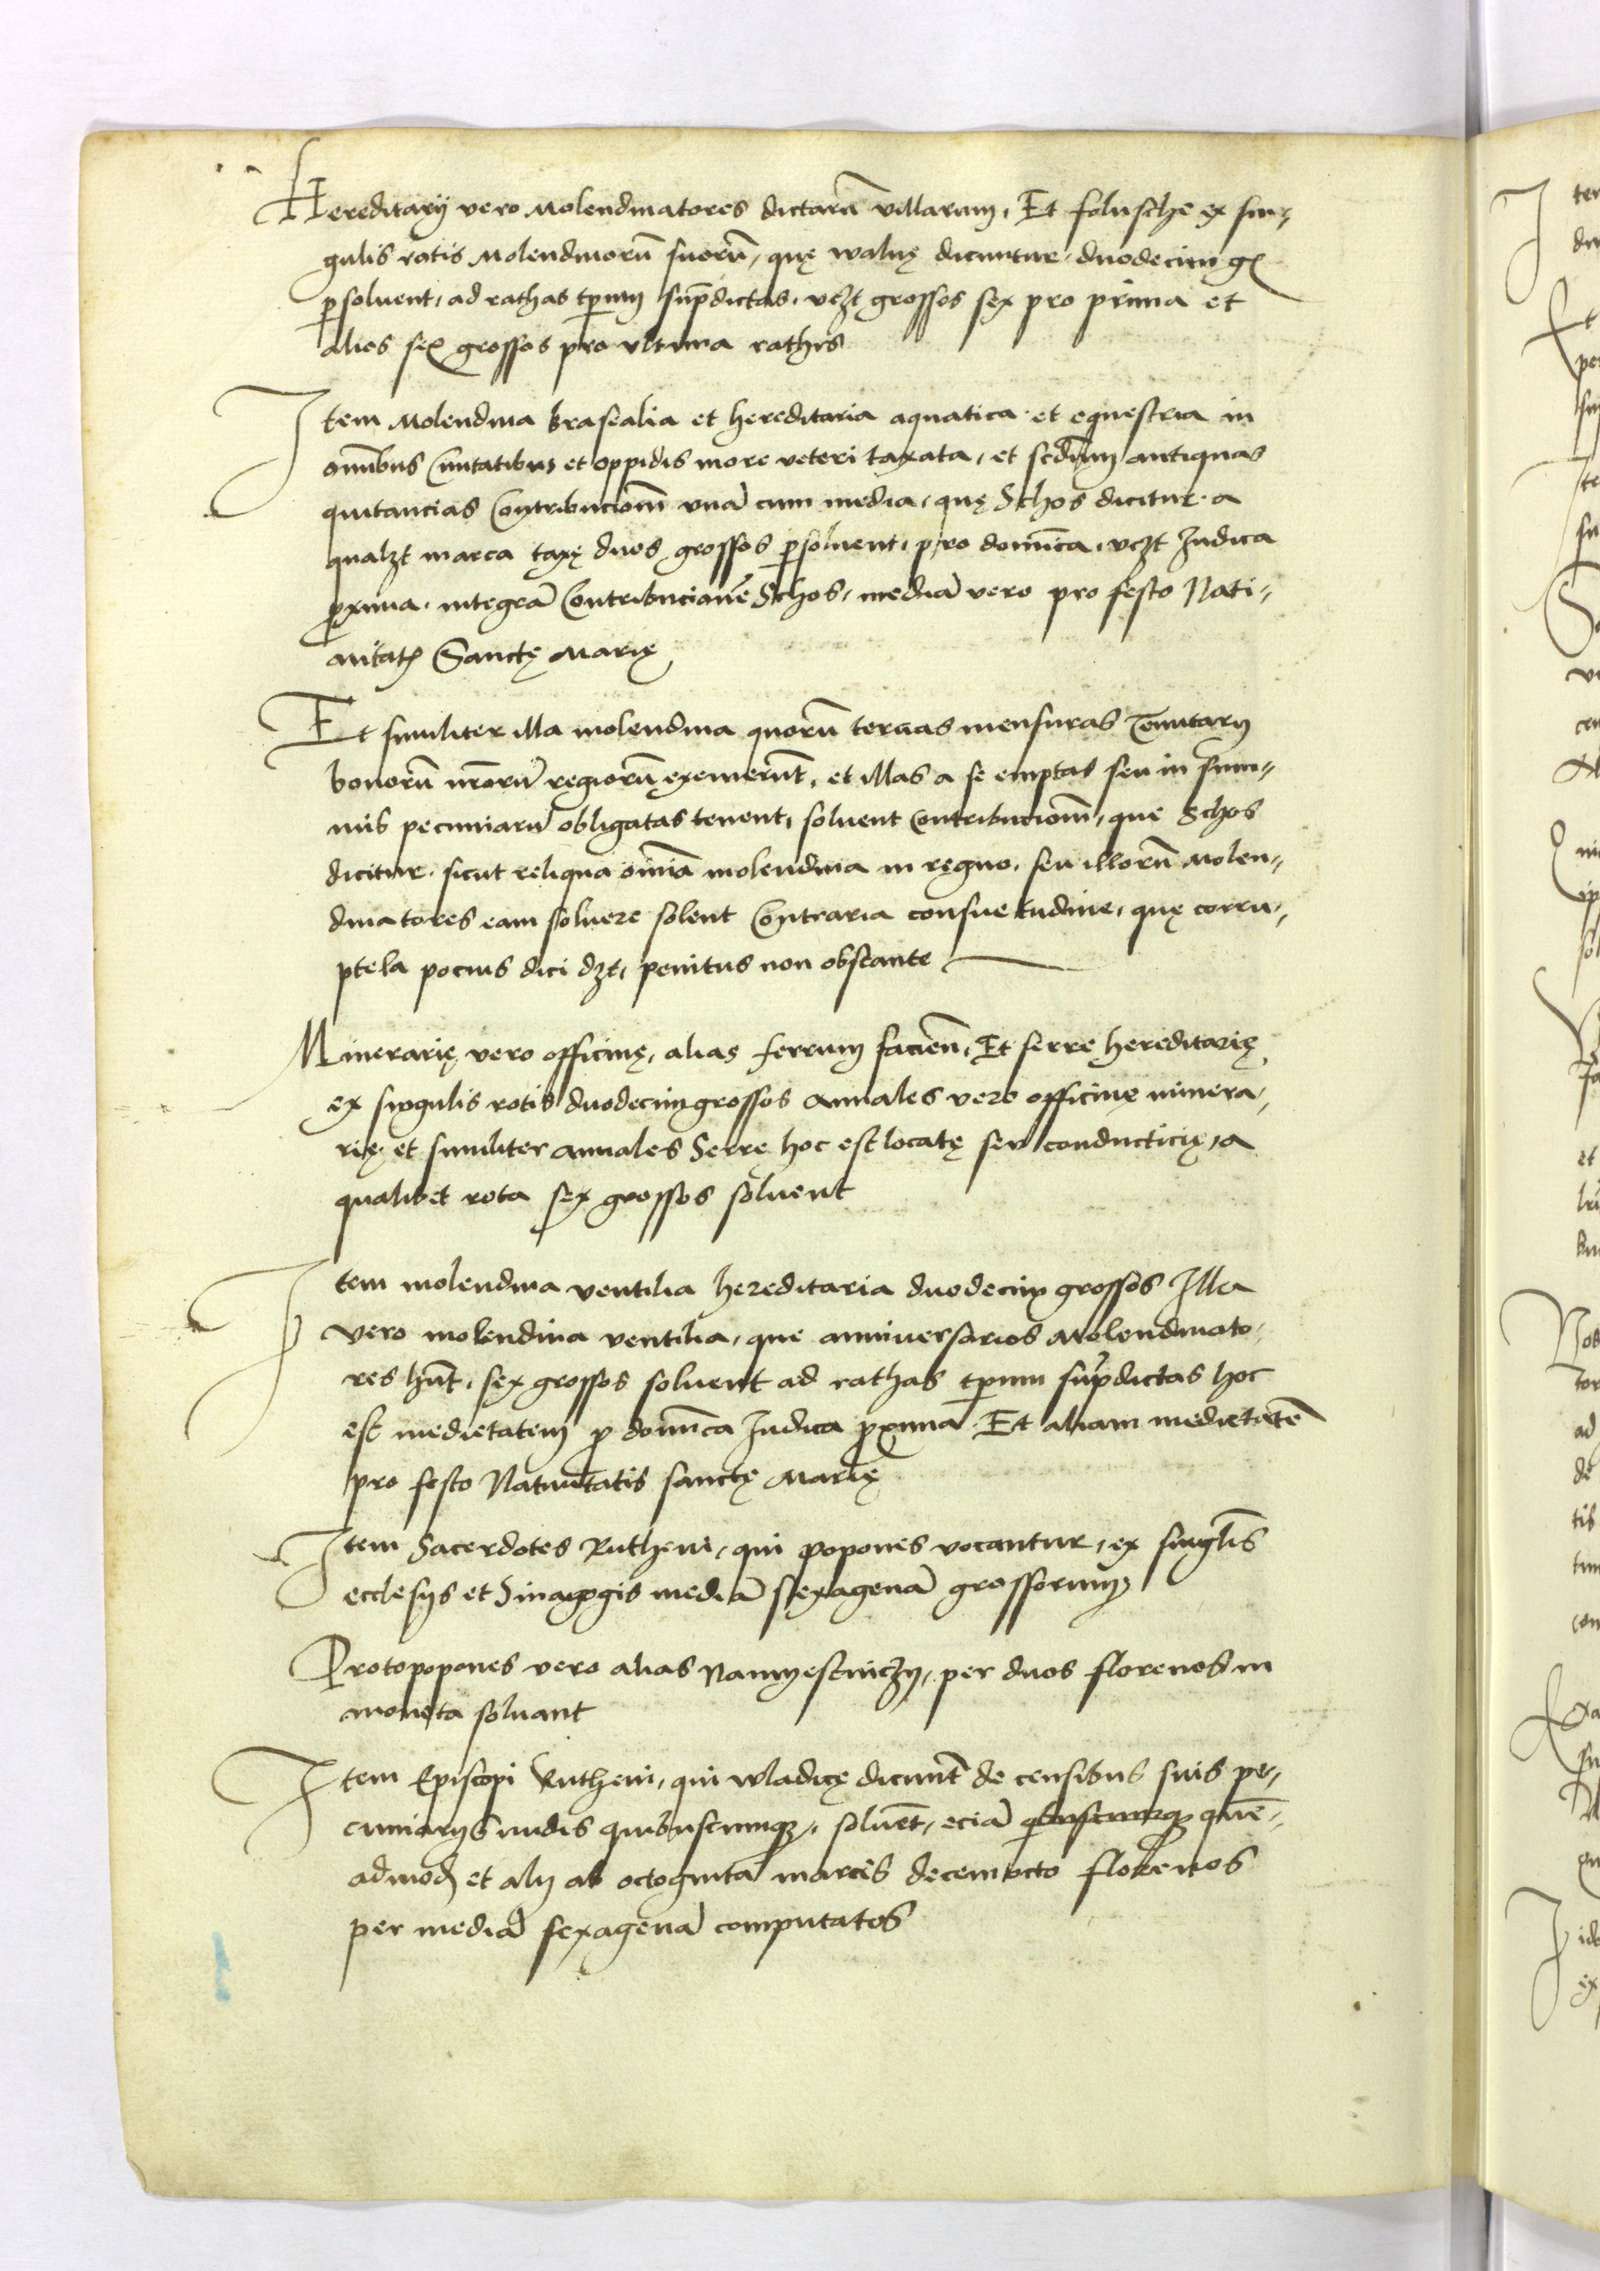 Hereditarÿ vero Molendinatores dictarū villarum, Et folusche ex sin⸗
gulis rotis Molendinorū suorū, quę waluę dicuntur, duodecim gͬ
ꝑsoluent, ad rathas tp̄rum sup̄dictas, vczt grossos sex pro prima et
alios sex grossos pro vltima rathis
Item Molendina brasealia et hereditaria aquatica et equestria in
om̄ibus Ciuitatibus et oppidis more veteri taxata, et scd̄um antiquas
quitancias Contribucionem vnā cum media, quę Schos dicitur a
qualzt marca taxę duos grossos ꝑsoluent, pro domīca, vczt Judica
ꝓxima, integrā Contribucionē Schos, mediā vero pro festo Nati⸗
uitatis Sanctę Marię
Et similiter illa molendina quorū tercias mensuras Tenutarÿ
bonorū nr̄orū regiorū exemerūt, et illas a se emptas seu in sum⸗
mis pecuniarū obligatas tenent, soluent Contribucionem, que Schos
dicitur, sicut reliqua om̄ia molendina in regno, seu illorū Molen⸗
dinatores eam soluere solent Contraria consuetudine, quę corru⸗
ptela pocius dici dzt, penitus non obstante
Minerarię vero officinę, alias ferrum facien̄, Et serre hereditarię
ex singulis rotis duodecim grossos Annales vero officinę minera⸗
rię et similiter annales Serrę hoc est locatę seu conducticię, a
qualibet rota sex grossos soluent
Item molendina ventilia hereditaria duodecim grossos Illa
vero molendina ventilia, que anniuersarios Molendinato⸗
res hn̄t, sex grossos soluent ad rathas tp̄rum sup̄dictas hoc
est medietatem ꝓ domīca Judica ꝓxima Et aliam medietatē
pro festo Natiuitatis sanctę Marię
Item Sacerdotes Rutheni, qui popones vocantur, ex singl̄is
ecclesÿs et Sinagogis mediā sexagenā grossorum
Protopopones vero alias Namyestniczÿ, per duos florenos in
moneta soluant
Item Episcopi Rutheni, qui wladicę dicunt̄ de censibus suis pe⸗
cuniarÿs nudis quibuscumqꝫ, soluēt, eciā quibuscumqꝫ quē⸗
admodū et alÿ ab octoginta marcis decem octo florenos
per mediā sexagenā computatos